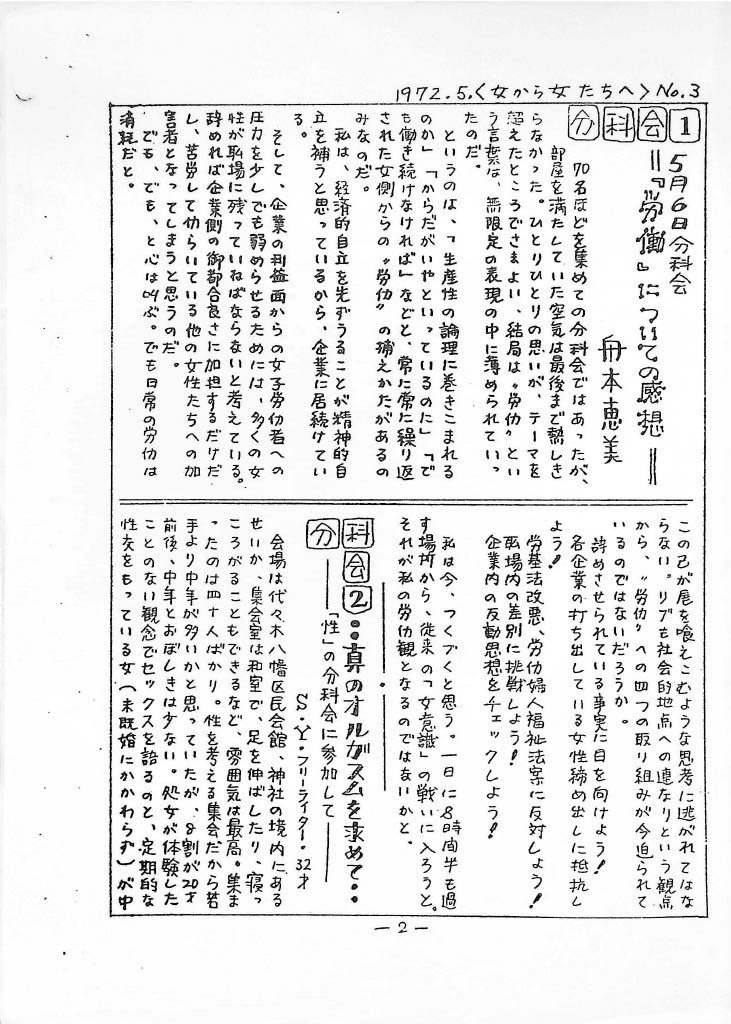 1972.5.〈女から女たちへ〉No.3
分科会1
5月6日分科会
=『労働』についての感想=
舟本恵美
70名ほどを集めての分科会ではあったが、
部屋を満たしていた空気は最後まで熱しき
らなかった。ひとりひとりの思いが、テーマを
超えたところでさまよい、結局は〝労仂〟とい
う言葉は、無限定の表現の中に薄められていっ
たのだ。
というのは、「生産性の論理に巻きこまれる
のか」「からだがいやといっているのに」「で
も働き続けなければ」などと、常に常に繰り返
された女側からの〝労仂〟の捕えかたがあるの
みなのだ。
私は、経済的自立を先ずうることが精神的自
立を補うと思っているから、企業に居続けてい
る。
そして、企業の利益面からの女子労仂者への
圧力を少しでも弱めらせるためには、多くの女
性が職場に残っていねばならないと考えている。
辞めれば企業側の御都合良さに加担するだけだ
し、苦労して仂らいている他の女性たちへの加
害者となってしまうと思うのだ。
でも、でも、と心は叫ぶ。でも日常の労仂は
消耗だと。
この己が尾を喰えこむような思考に逃がれてはな
らない。リブも社会的地点への連なりという観点
から、〝労仂〟への四つの取り組みが今迫られて
いるのではないだろうか。
諦めさせられている事実に目を向けよう!
各企業の打ち出している女性締め出しに抵抗し
よう!
労基法改悪、労仂婦人福祉法案に反対しよう!
職場内の差別に挑戦しよう!
企業内の反動思想をチェックしよう!
私は今、つくづくと思う。一日に8時間半も過
す場所から、従来の「女意識」の戦いに入ろうと。
それが私の労仂観となるのではないかと。
分科会2:真のオルガズムを求めて・・
―「性」の分科会に参加して―
S・Y・フリーライター・32才
会場は代々木八幡区民会館、神社の境内にある
せいか、集会室は和室で、足を伸ばしたり、寝っ
ころがることもできるなど、雰囲気は最高。集ま
ったのは四十人ばかり。性を考える集会だから若
手より中年が多いかと思っていたが、8割が20才
前後、中年とおぼしきは少ない。処女が体験した
ことのない観念でセックスを語るのと、定期的な
性交をもっている女(未既婚にかかわらず)が中
―2―